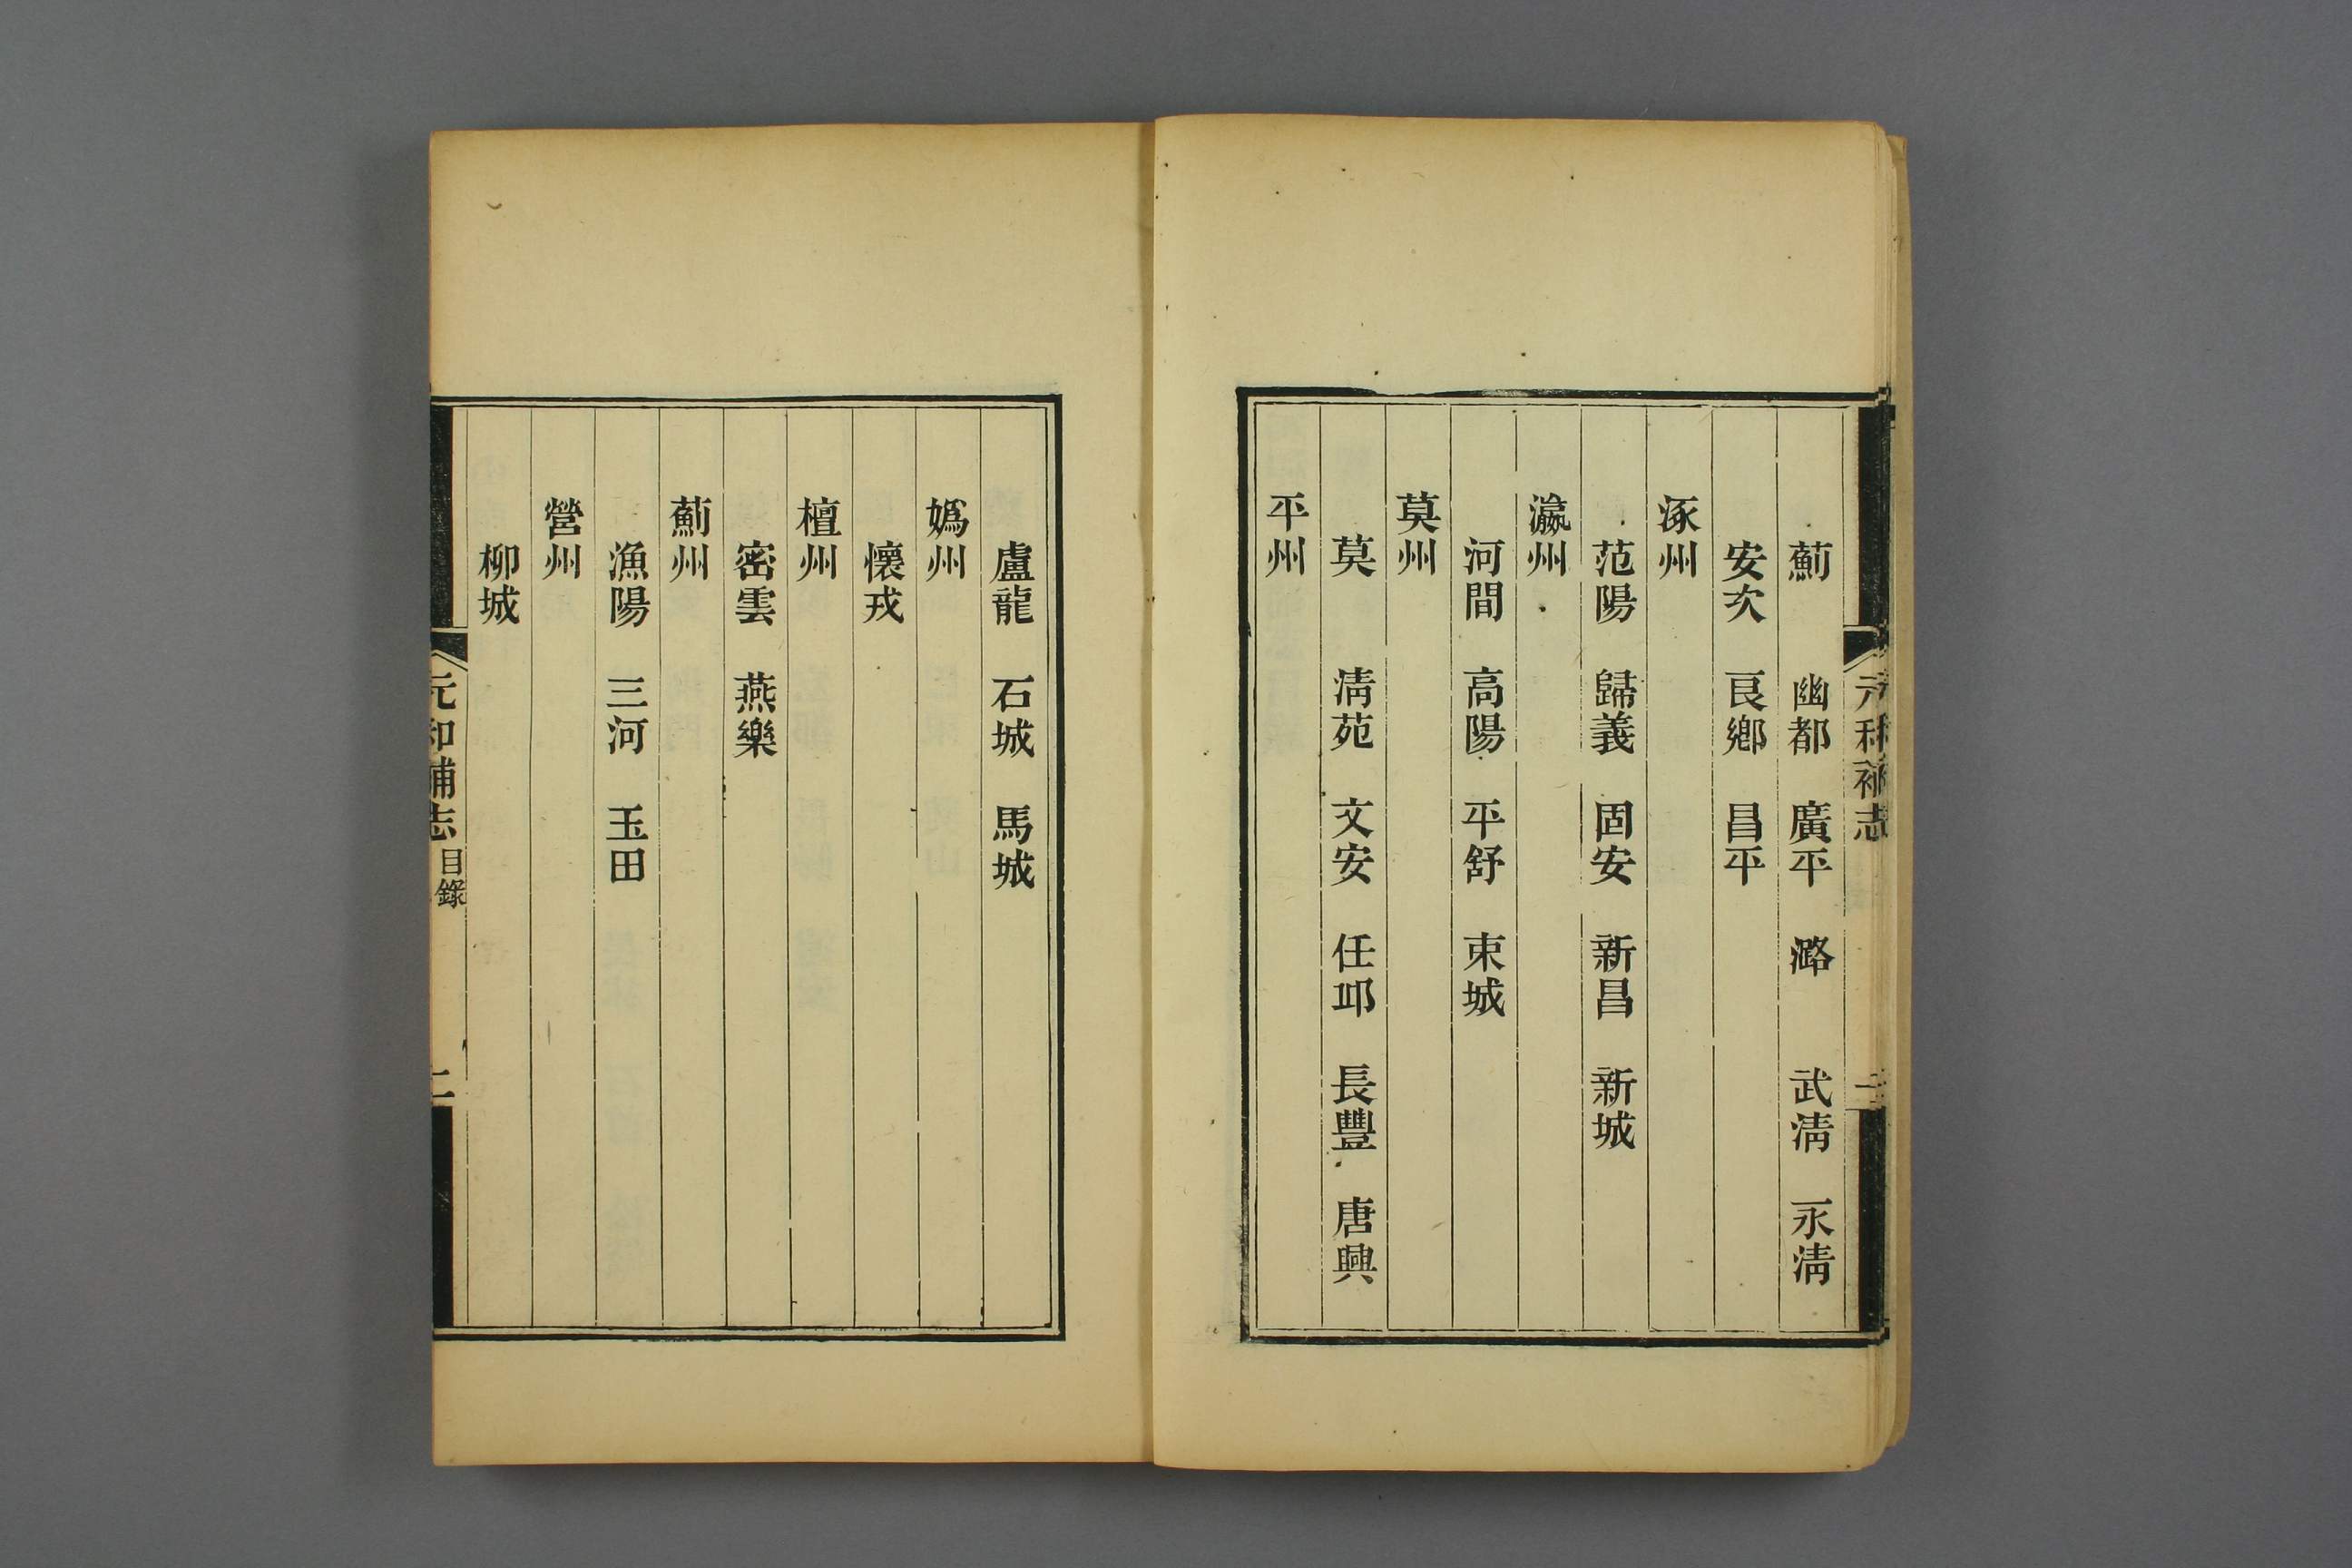 元和補志
二
薊　幽都　廣平　潞　武淸　永淸
安次　良鄉　昌平
涿州
范陽　歸義　固安　新昌　新城
瀛州
河間　高陽　平舒　束城
莫州
莫　淸苑　文安　任邱　長豐　唐興
平州
盧龍　石城　馬城
嬀州
懷戎
檀州
密雲　燕樂
薊州
漁陽　三河　玉田
營州
柳城
元和補志 目錄